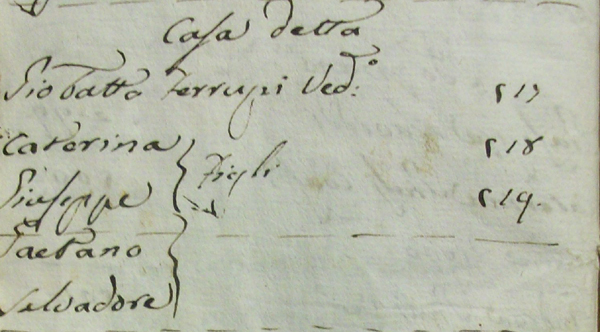 Casa detta
Gio Batta Ferrugi Ved:º C 17
Caterina C 18
Figli
Giuseppe C 19.
Gaetano
Salvadore